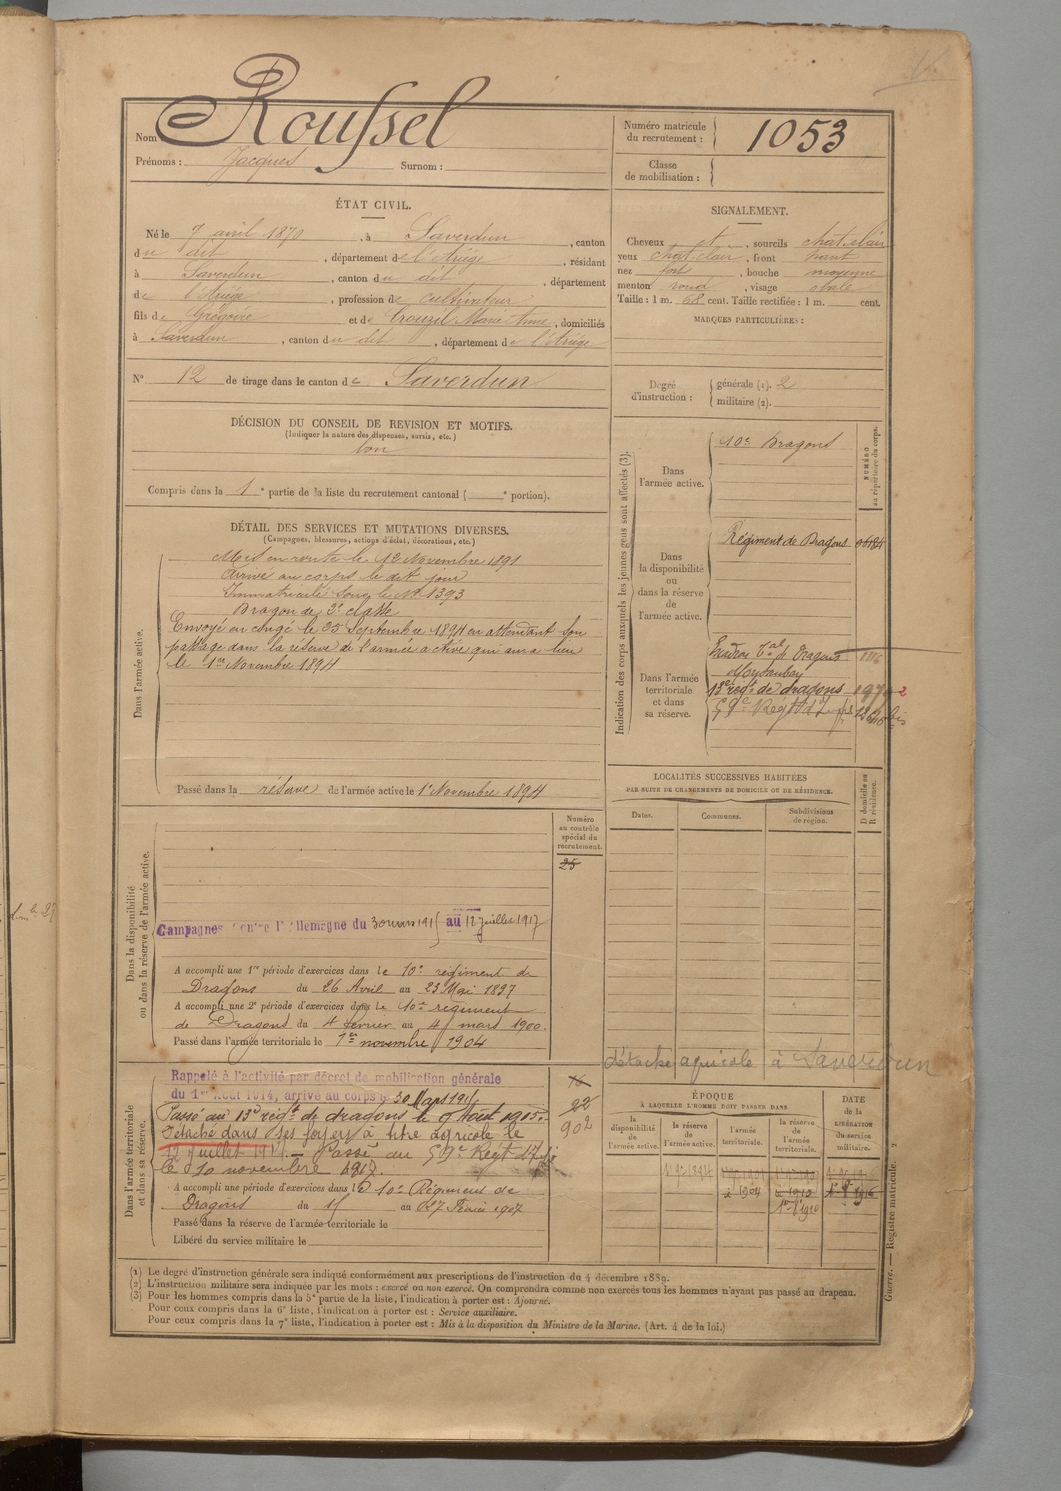 Nom Roussel
Prénoms : Jacques Surnom :
Numéro matricule du recrutement : 1053
Classe de mobilisation :
ÉTAT CIVIL.
Né le 7 avril 1870, à Saverdun, canton
du dit, département de l'Ariège, résidant
à Saverdun, canton du dit, département
de l'Ariège, profession de cultivateur
fils de Grégoire et de Marie Anne, domiciliés
à Saverdun, canton du dit, département de l'Ariège
N° 12 de tirage dans le canton de Saverdun
SIGNALEMENT.
Cheveux et, sourcils chat. clair
yeux chat. clair, front haut
nez fort, bouche moyenne
menton rond, visage ovale
Taille : 1 m. 68 cent. Taille rectifiée : 1 m. cent.
MARQUES PARTICULIÈRES :
Degré d'instruction :
générale (1). 2
militaire (2).
DÉCISION DU CONSEIL DE REVISION ET MOTIFS.
(Indiquer la nature des dispenses, sursis, etc.)
bon
Compris dans la 1e partie de la liste du recrutement cantonal ( e portion).
DÉTAIL DES SERVICES ET MUTATIONS DIVERSES.
(Campagnes, blessures, actions d'éclat, décorations, etc.)
Dans l'armée active.
Mis en route le 12 Novembre 1891
Arrivé au corps le dit jour
Immatriculé sous le N° 1393
Dragon de 2e classe
Envoyé en congé le 25 Septembre 1894 en attendant son
passage dans la réserve de l'armée active qui aura lieu
le 1er Novembre 1894
Passé dans la réserve de l'armée active le 1er Novembre 1894
Indication des corps auxquels les jeunes gens sont affectés (3).
NUMÉRO au répertoire du corps.
Dans l'armée active.
10e Dragons
Dans la disponibilité ou dans la réserve de l'armée active.
Régiment de Dragons
Dans l'armée territoriale et dans sa réserve.
Dragons
Montauban
13e régt de dragons
LOCALITÉS SUCCESSIVES HABITÉES
PAR SUITE DE CHANGEMENTS DE DOMICILE OU DE RÉSIDENCE.
D domicile ou R résidence.
Dates. Communes. Subdivisions de région.
détaché agricole à Saverdun
Dans la disponibilité ou dans la réserve de l'armée active.
Numéro au contrôle spécial du recrutement.
25
Campagnes contre l'Allemagne du 30 mars 1915 au 12 juillet 1917
A accompli une 1re période d'exercices dans le 10e régiment de
Dragons du 26 Avril au 23 Mai 1897
A accompli une 2e période d'exercices dans le 10e régiment
de Dragons du février au 4 mars 1900.
Passé dans l'armée territoriale le 1er novembre 1904
Dans l'armée territoriale et dans sa réserve.
Rappelé à l'activité par décret de mobilisation générale
du 1er Août 1914, arrivé au corps le 30 Mars 1915
Passé au 13e régt de dragons le 9 Août 1915.
Détaché dans ses foyers à titre agricole le
12 juillet 1917. — Passé au Régt d'
le 10 novembre 1917.
A accompli une période d'exercices dans le 10e Régiment de
Dragons du au 1907
Passé dans la réserve de l'armée territoriale le
Libéré du service militaire le
22
902
ÉPOQUE
À LAQUELLE L'HOMME DOIT PASSER DANS
la disponibilité de l'armée active. la réserve de l'armée active. l'armée territoriale. la réserve de l'armée territoriale. DATE de la LIBÉRATION du service militaire.
(1) Le degré d'instruction générale sera indiqué conformément aux prescriptions de l'instruction du 4 décembre 1889.
(2) L'instruction militaire sera indiquée par les mots : exercé ou non exercé. On comprendra comme non exercés tous les hommes n'ayant pas passé au drapeau.
(3) Pour les hommes compris dans la 5e partie de la liste, l'indication à porter est : Ajourné.
Pour ceux compris dans la 6e liste, l'indication à porter est : Service auxiliaire.
Pour ceux compris dans la 7e liste, l'indication à porter est : Mis à la disposition du Ministre de la Marine. (Art. 4 de la loi.)
Guerre. — Registre matricule. 2